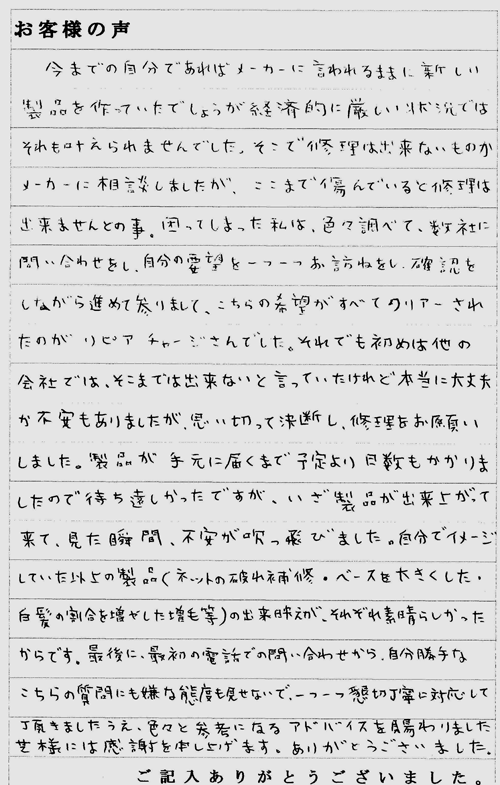 お客様の声
今までの自分であればメーカーに言われるままに新しい
製品を作っていたでしょうが経済的に厳しい状況では
それも叶えられませんでした。そこで修理は出来ないものか
メーカーに相談しましたが、ここまで傷んでいると修理は
出来ませんとの事。困ってしまった私は、色々調べて、数社に
問い合わせをし、自分の要望を一つ一つお訪ねをし、確認を
しながら進めて参りまして、こちらの希望がすべてクリアーされ
たのがリピア チャージさんでした。それでも初めは他の
会社では、そこまでは出来ないと言っていたけれど本当に大丈夫
か不安もありましたが、思い切って決断し、修理をお願い
しました。製品が手元に届くまで予定より日数もかかりま
したので待ち遠しかったですが、いざ製品が出来上がって
来て、見た瞬間、不安が吹っ飛びました。自分でイメージ
していた以上の製品(ネットの破れ補修・ベースを大きくした・
白髪の割合を増やした増毛等)の出来映えが、それぞれ素晴らしかった
からです。最後に、最初の電話での問い合わせから、自分勝手な
こちらの質問にも嫌な態度も見せないで、一つ一つ懇切丁寧に対応して
頂きましたうえ、色々と参考になるアドバイスを賜わりました
皆様には感謝を申し上げます。ありがとうございました。
ご記入ありがとうございました。